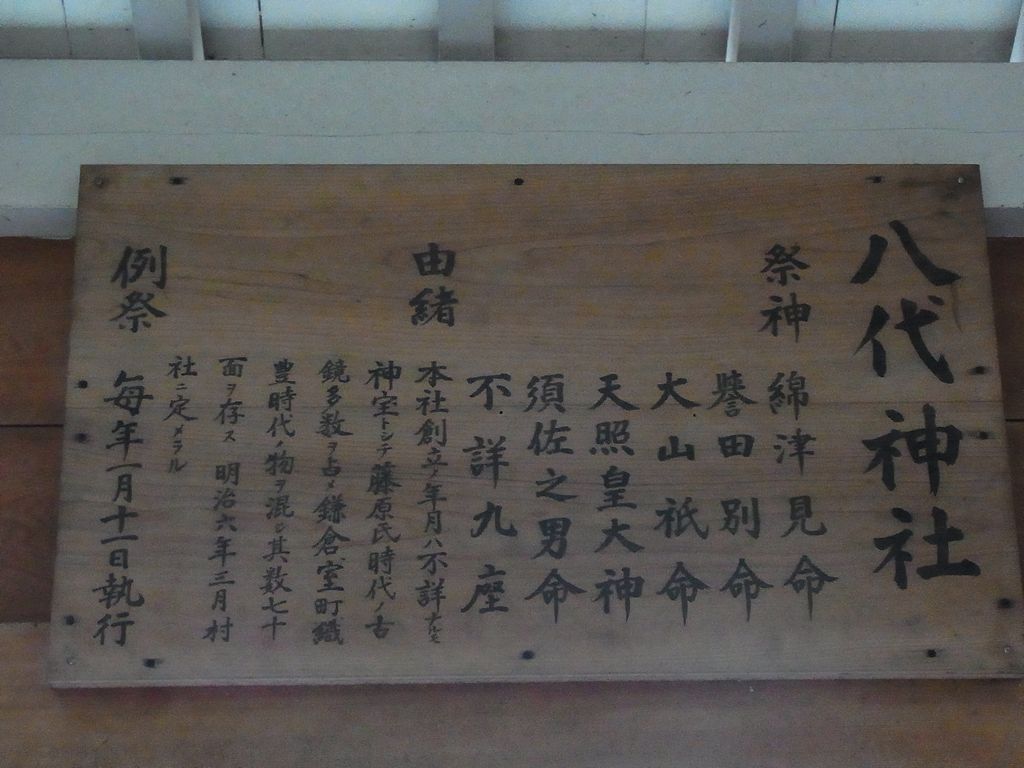 八代神社
祭神
綿津見命
譽田別命
大山祇命
天照皇大神
須佐之男命
不詳九座
由緒
本社創立ノ年月ハ不詳ナルモ
神室トシテ藤原氏時代ノ古
鏡多数ヲ占メ鎌倉室町織
豊時代ノ物ヲ混シ其数七十
面ヲ存ス 明治六年三月村
社ニ定メラル
例祭
毎年一月十一日執行